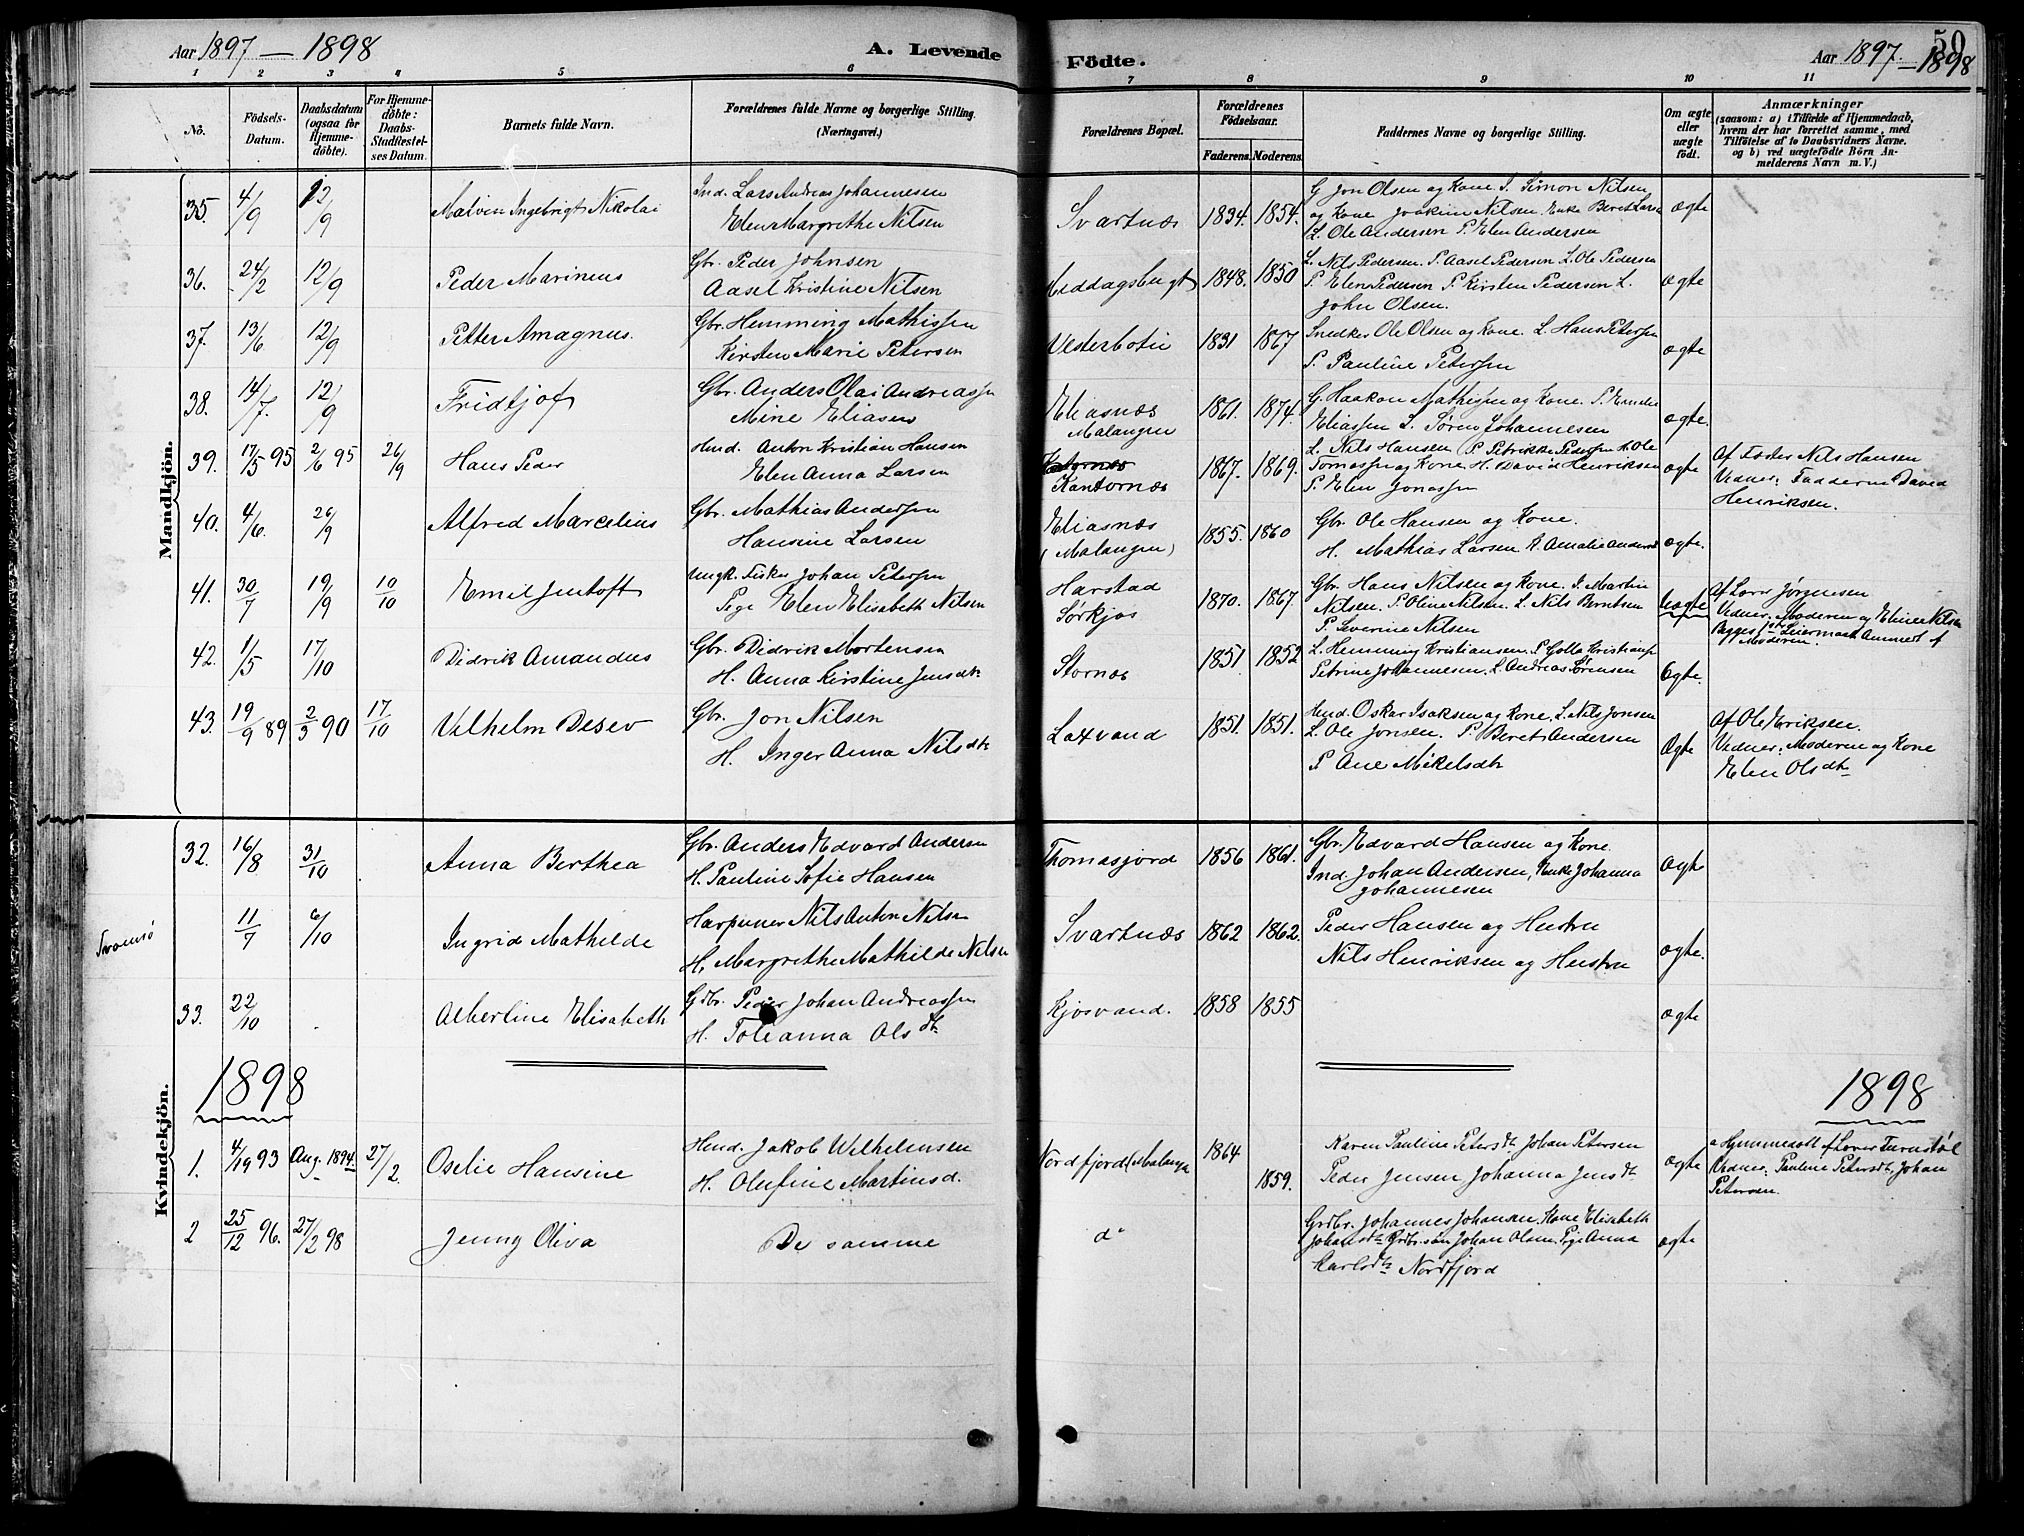 Aar 1897 — 1898
A. Levende
Födte.
Aar 1897. — 1898
50
1 2 3 4 5 6 7 8 9 10 11
No.
Födsels-Datum.
Daabsdatum (ogsaa for Hjemme-döbte).
For Hjemme-döbte: Daabs-Stadfæstel-ses Datum.
Barnets fulde Navn.
Forældrenes fulde Navne og borgerlige Stilling. (Næringsvei.)
Forældrenes Bopæl.
Forældrenes Födselsaar.
Faderens. Moderens.
Faddernes Navne og borgerlige Stilling.
Om ægte eller uægte födt.
Anmærkninger
(saasom: a) i Tilfælde af Hjemmedaab, hvem der har forrettet samme, med Tilföielse af to Daabsvidners Navne, og b) ved uægtefödte Börn An-melderens Navn m. V.)
Mandkjön.
35. 4/9 12/9 Malvin Ingebrigt Nikolai
Ind. Lars Andreas Johannesen
Elen Margrethe Nilsen
Svartnæs 1834. 1854.
G Jon Olsen og Kone J. Simon Nilsen
og Kone Joakim Nilsen. Enke Beret Larsen
L. Ole Andersen P. Elen Andersen
ægte
36. 24/2 12/9 Peder Marinius
Gbr. Peder Johnsen
Aasel Kristine Nilsen
Middagsbugt 1848. 1850
L. Nils Pedersen. P. Aasel Pedersen L. Ole Pedersen
P. Elen Pedersen P. Kirsten Pedersen L.
John Olsen.
ægte
37. 13/6 12/9 Petter Amagnus.
Gbr. Hemming Mathissen
Kirsten Marie Petersen
Vesterbotn 1831 1867
Snedker Ole Olsen og Kone. L. Hans Peterssen
P. Pauline Peterssen
ægte
38. 14/7. 12/9 Fridtjof
Gbr. Anders Olai Andreassen
Mine Eliasen
Eliasnæs Malangen 1861. 1874.
G. Haakon Mathissen og Kone. P. Emilie
Eliassen L. Søren Johannesen
ægte.
39. 17/5 95 2/6 95 26/9 Hans Peder
Hmd. Anton Kristian Hansen
Elen Anna Larsen
Kantornæs 1867. 1869.
L. Nils Hansen P. Petrikke Pedersen H. Ole
Tomassen og Kone. H. David Henriksen
P. Elen Jonassen
ægte
Af Fader Nils Hansen
Vidner: Fadderne David
Henriksen.
40. 4/6. 26/9 Alfred Marcelius
Gbr. Mathias Anderssen
Hansine Larsen
Eliasnæs (Malangen) 1855. 1860
Gbr. Ole Hansen og Kone.
H. Mathias Larsen P. Amalie Anders
ægte.
41. 30/7 19/9 10/10 Emil Jentoft
Ungk. Fisker Johan Peterssen
Pige Elen Elisabeth Nilsen
Harstad
Sørkjos
1870. 1867.
Gbr. Hans Nilsen og Kone. P. Martin
Nilsen. P. Oline Nilsen. L. Nils Berntsen
P. Severine Nilsen
Uægte
Af Lars Jørgensen
Vidner. Moderen og Eline Nilsen
Begges 1ste Leiermaal Anmeldt af
Moderen.
42. 1/5 17/10 Didrik Amandus
Gbr. Didrik Mortensen
H. Anna Kirstine Jensdtr.
Stornæs 1851. 1852
L. Hemming Kristiansen. P. Golla Kristians
Petrine Johannesen. L. Andreas Sørensen
Ægte.
43. 19/9 89 2/3 90 17/10 Vilhelm Desev
Gbr. Jon Nilsen
H. Inger Anna Nilsdtr
Laxvand 1851. 1851.
Hmd. Oskar Isaksen og Kone. L. Nils Jonsen
L. Ole Jonsen. P. Beret Andersen
P Ane Mikelsdtr
Ægte
Af Ole Eriksen.
Vidner: Moderen og Kone
Elen Olsdtr
Kvindekjön.
32. 16/8 31/10 Anna Berthea
Gbr. Anders Edvard Andersen
H. Pauline Sofie Hansen
Thomasjord 1856 1861.
Gbr. Edvard Hansen og Kone.
Ind. Johan Andersen, Enke Johanna
Johannesen
Ægte
Tromsö
11/7 6/10 Ingrid Mathilde
Harpuner Nils Anton Nilsen
H. Margrethe Mathilde Nilsen
Svartnæs 1862 1862.
Peder Hansen og Hustru
Nils Henriksen og Hustru
ægte.
33. 22/10 Albertine Elisabeth
Grbr. Peder Johan Andreassen
H. Toleanna Olsdtr.
Kjosvand. 1858 1855
ægte
1898
1898
1. 4/19 93 Aug. 1894 27/2. Oselie Hansine
Hmd. Jakob Wilhelmsen
H. Olufine Martinsd.
Nordfjord (Malangen 1864 1859.
Karen Pauline Petersdtr Johan Petersen
Peder Jensen Johanna Jensdtr
ægte
a Hjemmedøbt af Lærer Turnstøl
Vidner: Pauline Petersdtr, Johan
Petersen.
2 25/12 96. 27/2 98 Jenny Oliva
De samme
do
Grdbr. Johannes Johansen, Kone Elisabeth
Johansdtr Grdbr.søn Johan Olsen Pige Anna
Karlsdtr Nordfjord
ægte